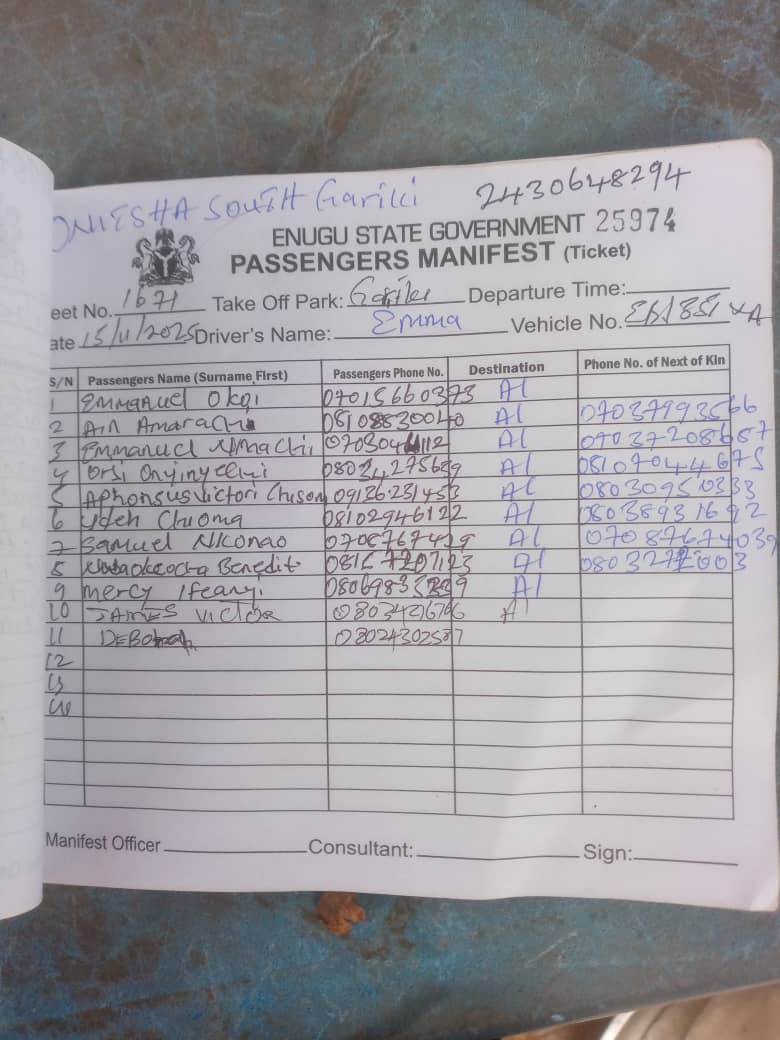 ONITSHA SOUTH Gariki 2430648294
ENUGU STATE GOVERNMENT 25974
PASSENGERS MANIFEST (Ticket)
eet No. 1671 Take Off Park: Gariki Departure Time:
ate 15/11/2025 Driver's Name: Emma Vehicle No.
S/N Passengers Name (Surname First) Passengers Phone No. Destination Phone No. of Next of Kin
1 Emmanuel Okoi 07015660373 Al
2 Ain Amarachi 08108830040 Al 07037993566
3 Emmanuel Al 07037208657
4 Orsi Onyinyechi Al 08107044675
5 Aphonsus Victori 09136231453 Al 08030950333
6 Udeh Chioma 08102946122 Al 08038931692
7 Samuel 07087674 Al 07087674039
8 Benedit Al
9 Mercy Ifeanyi Al
10 JAMES Victor A
11 DEBorah 08024302587
12
13
14
Manifest Officer Consultant: Sign: